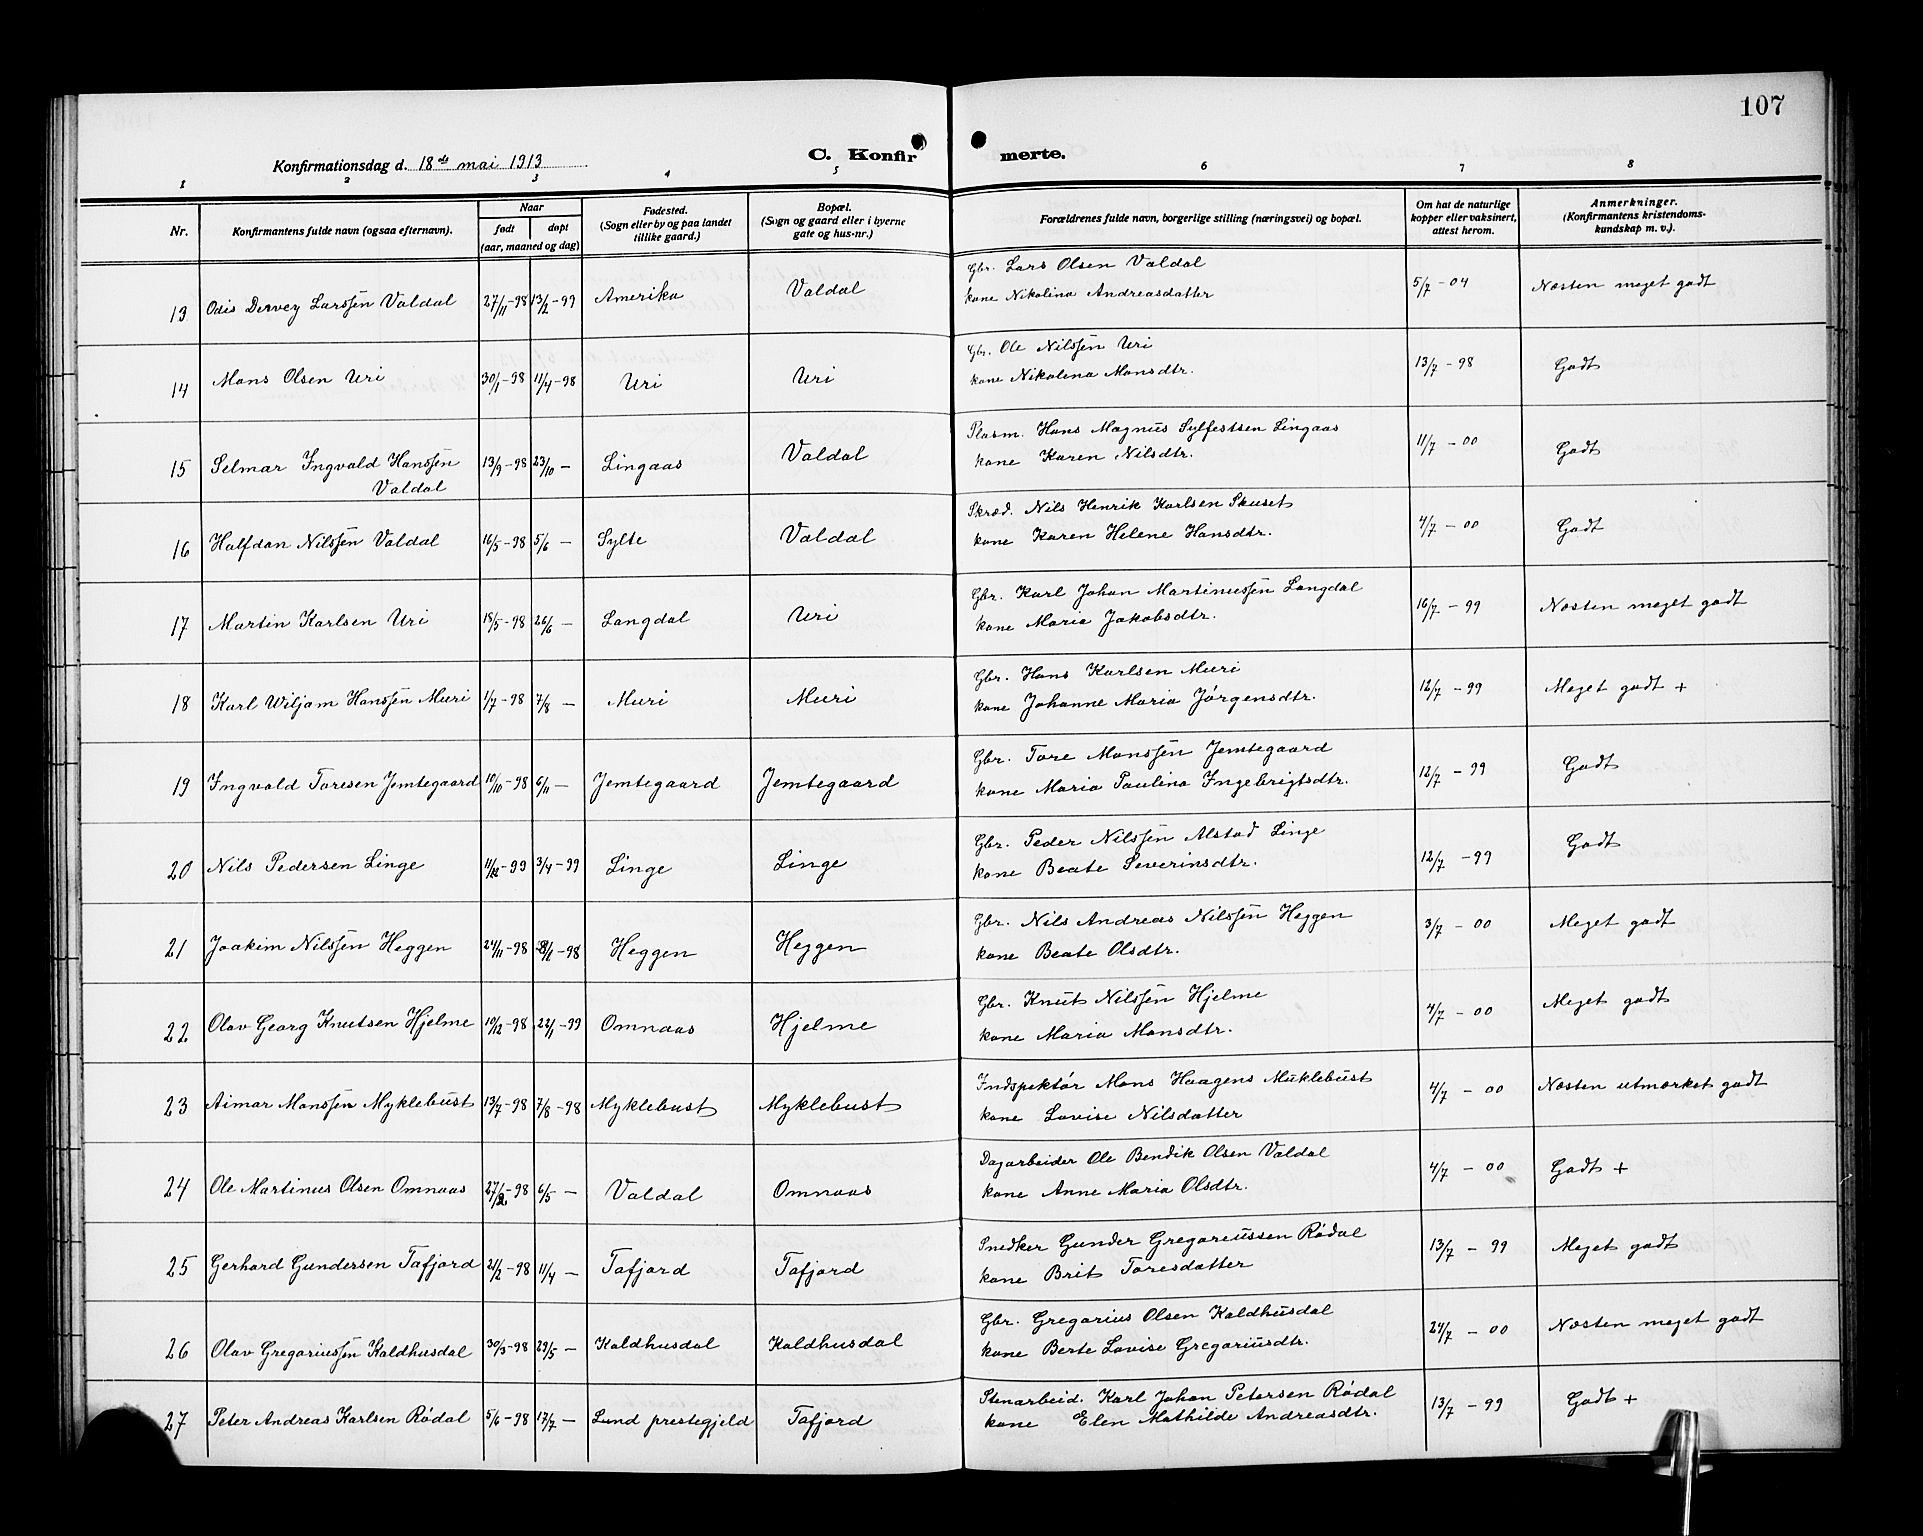 107
Konfirmationsdag d. 18de mai 1913
C. Konfirmerte.
1 2 3 4 5 6 7 8
Nr.
Konfirmantens fulde navn (ogsaa efternavn).
Naar
født
døpt
(aar, maaned og dag)
Fødested.
(Sogn eller by og paa landet
tillike gaard.)
Bopæl.
(Sogn og gaard eller i byerne
gate og hus-nr.)
Forældrenes fulde navn, borgerlige stilling (næringsvei) og bopæl.
Om hat de naturlige
kopper eller vaksinert,
attest herom.
Anmerkninger.
(Konfirmantens kristendoms-
kundskap m. v.).
13 Odis Dervey Larssen Valdal 27/11-98 13/2-99 Amerika Valdal Gbr. Lars Olsen Valdal
kone Nikolina Andreasdatter 5/7-04 Næsten meget godt
14 Mons Olsen Uri 30/1-98 11/4-98 Uri Uri Gbr. Ole Nilssen Uri
kone Nikolina Monsdtr. 13/7-98 Godt
15 Selmar Ingvald Hanssen
Valdal 13/9-98 23/10 - Lingaas Valdal Plasm. Hans Magnus Sylfestsen Lingaas
kone Karen Nilsdtr. 11/7-00 Godt
16 Halfdan Nilssen Valdal 16/5-98 5/6 - Sylte Valdal Skræd. Nils Henrik Karlsen Skuset
kone Karen Helene Hansdtr. 4/7-00 Godt
17 Martin Karlsen Uri 18/5-98 26/6 - Langdal Uri Gbr. Karl Johan Martinussen Langdal
kone Maria Jakobsdtr. 16/7-99 Næsten meget godt
18 Karl Wiljam Hanssen Muri 1/7-98 7/8 - Muri Muri Gbr. Hans Karlsen Muri
kone Johanne Maria Jørgensdtr. 12/7-99 Meget godt +
19 Ingvald Toresen Jemtegaard 10/10-98 6/11 - Jemtegaard Jemtegaard Gbr. Tore Monssen Jemtegaard
kone Maria Paulina Ingebrigtsdtr. 12/7-99 Godt
20 Nils Pedersen Linge -99 3/4-99 Linge Linge Gbr. Peder Nilssen Alstad Linge
kone Beate Severinsdtr. 12/7-99 Godt
21 Joakim Nilssen Heggen 24/11-98 -98 Heggen Heggen Gbr. Nils Andreas Nilssen Heggen
kone Beate Olsdtr. 3/7-00 Meget godt
22 Olav Georg Knutsen Hjelme 10/12-98 22/1-99 Omnaas Hjelme Gbr. Knut Nilssen Hjelme
kone Maria Monsdtr. 4/7-00 Meget godt
23 Aimar Monssen Myklebust 13/7-98 7/8-98 Myklebust Myklebust Indspektør Mons Haagens Muklebust
kone Lovise Nilsdatter 4/7-00 Næsten utmærket godt
24 Ole Martinus Olsen Omnaas -98 6/5 - Valdal Omnaas Dagarbeider Ole Bendik Olsen Valdal
kone Anne Maria Olsdtr. 4/7-00 Godt +
25 Gerhard Gundersen Tafjord 21/2-98 11/4 - Tafjord Tafjord Snedker Gunder Gregoriussen Rødal
kone Brit Toresdatter 13/7-99 Meget godt
26 Olav Gregoriussen Kaldhusdal 30/3-98 29/5 - Kaldhusdal Kaldhusdal Gbr. Gregorius Olsen Kaldhusdal
kone Berte Lovise Gregoriusdtr. 24/7-00 Næsten meget godt
27 Peter Andreas Karlsen Rødal 5/6-98 17/7 - Lund prestegjeld Tafjord Stenarbeid. Karl Johan Petersen Rødal
kone Elen Mathilde Andreasdtr. 13/7-99 Godt +